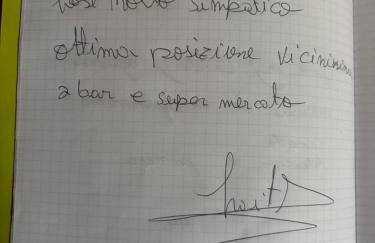 molto simpatico
ottima posizione vicinissima
a bar e super mercato